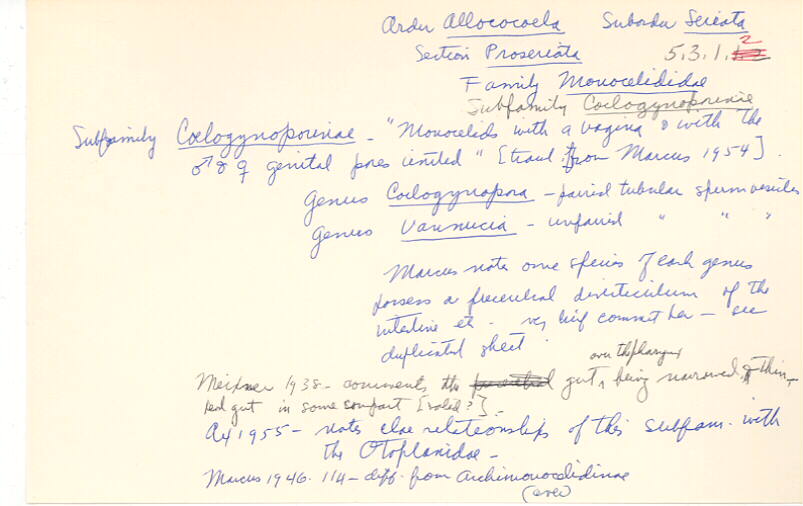 Order Allococoela Suborder Seriata
Section Proseriata 5.3.1.2
Family Monocelididae
Subfamily Coelogynoporinae
Subfamily Coelogynoporinae - "Monocelids with a vagina & with the
♂ & ♀ genital pores united" [transl. from Marcus 1954].
Genus Coelogynopora - paired tubular sperm vesicles
Genus Vannucia - unpaired " " "
Marcus notes one species of each genus
possess a precentral diverticulum of the
intestine etc - very brief comment here - see
duplicated sheet
over the pharynx
Meixner 1938 - comments the gut, being narrowed, & thin,
gut in some compart [solid?].
Ax 1955 - notes close relationships of this subfam. with
the Otoplanidae -
Marcus 1946. 114 - diff. from Archimonocelidinae
(over)